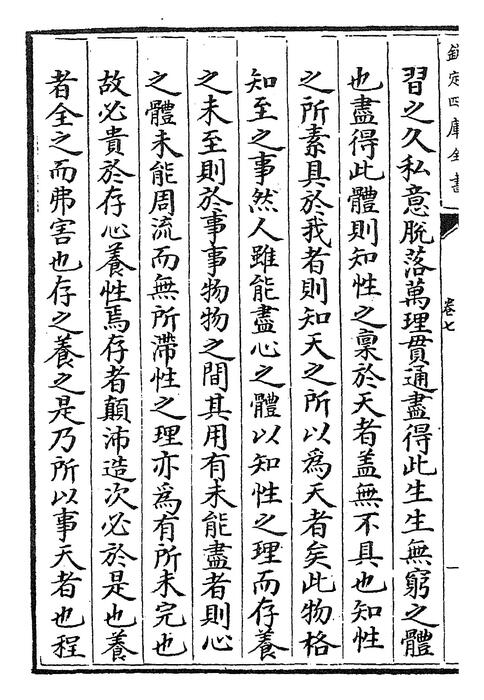 欽定四庫全書
卷七
習之久私意脫落萬理貫通盡得此生生無窮之體
也盡得此體則知性之稟於天者盖無不具也知性
之所素具於我者則知天之所以為天者矣此物格
知至之事然人雖能盡心之體以知性之理而存養
之未至則於事事物物之間其用有未能盡者則心
之體未能周流而無所滯性之理亦為有所未完也
故必貴於存心養性焉存者顛沛造次必於是也養
者全之而弗害也存之養之是乃所以事天者也程